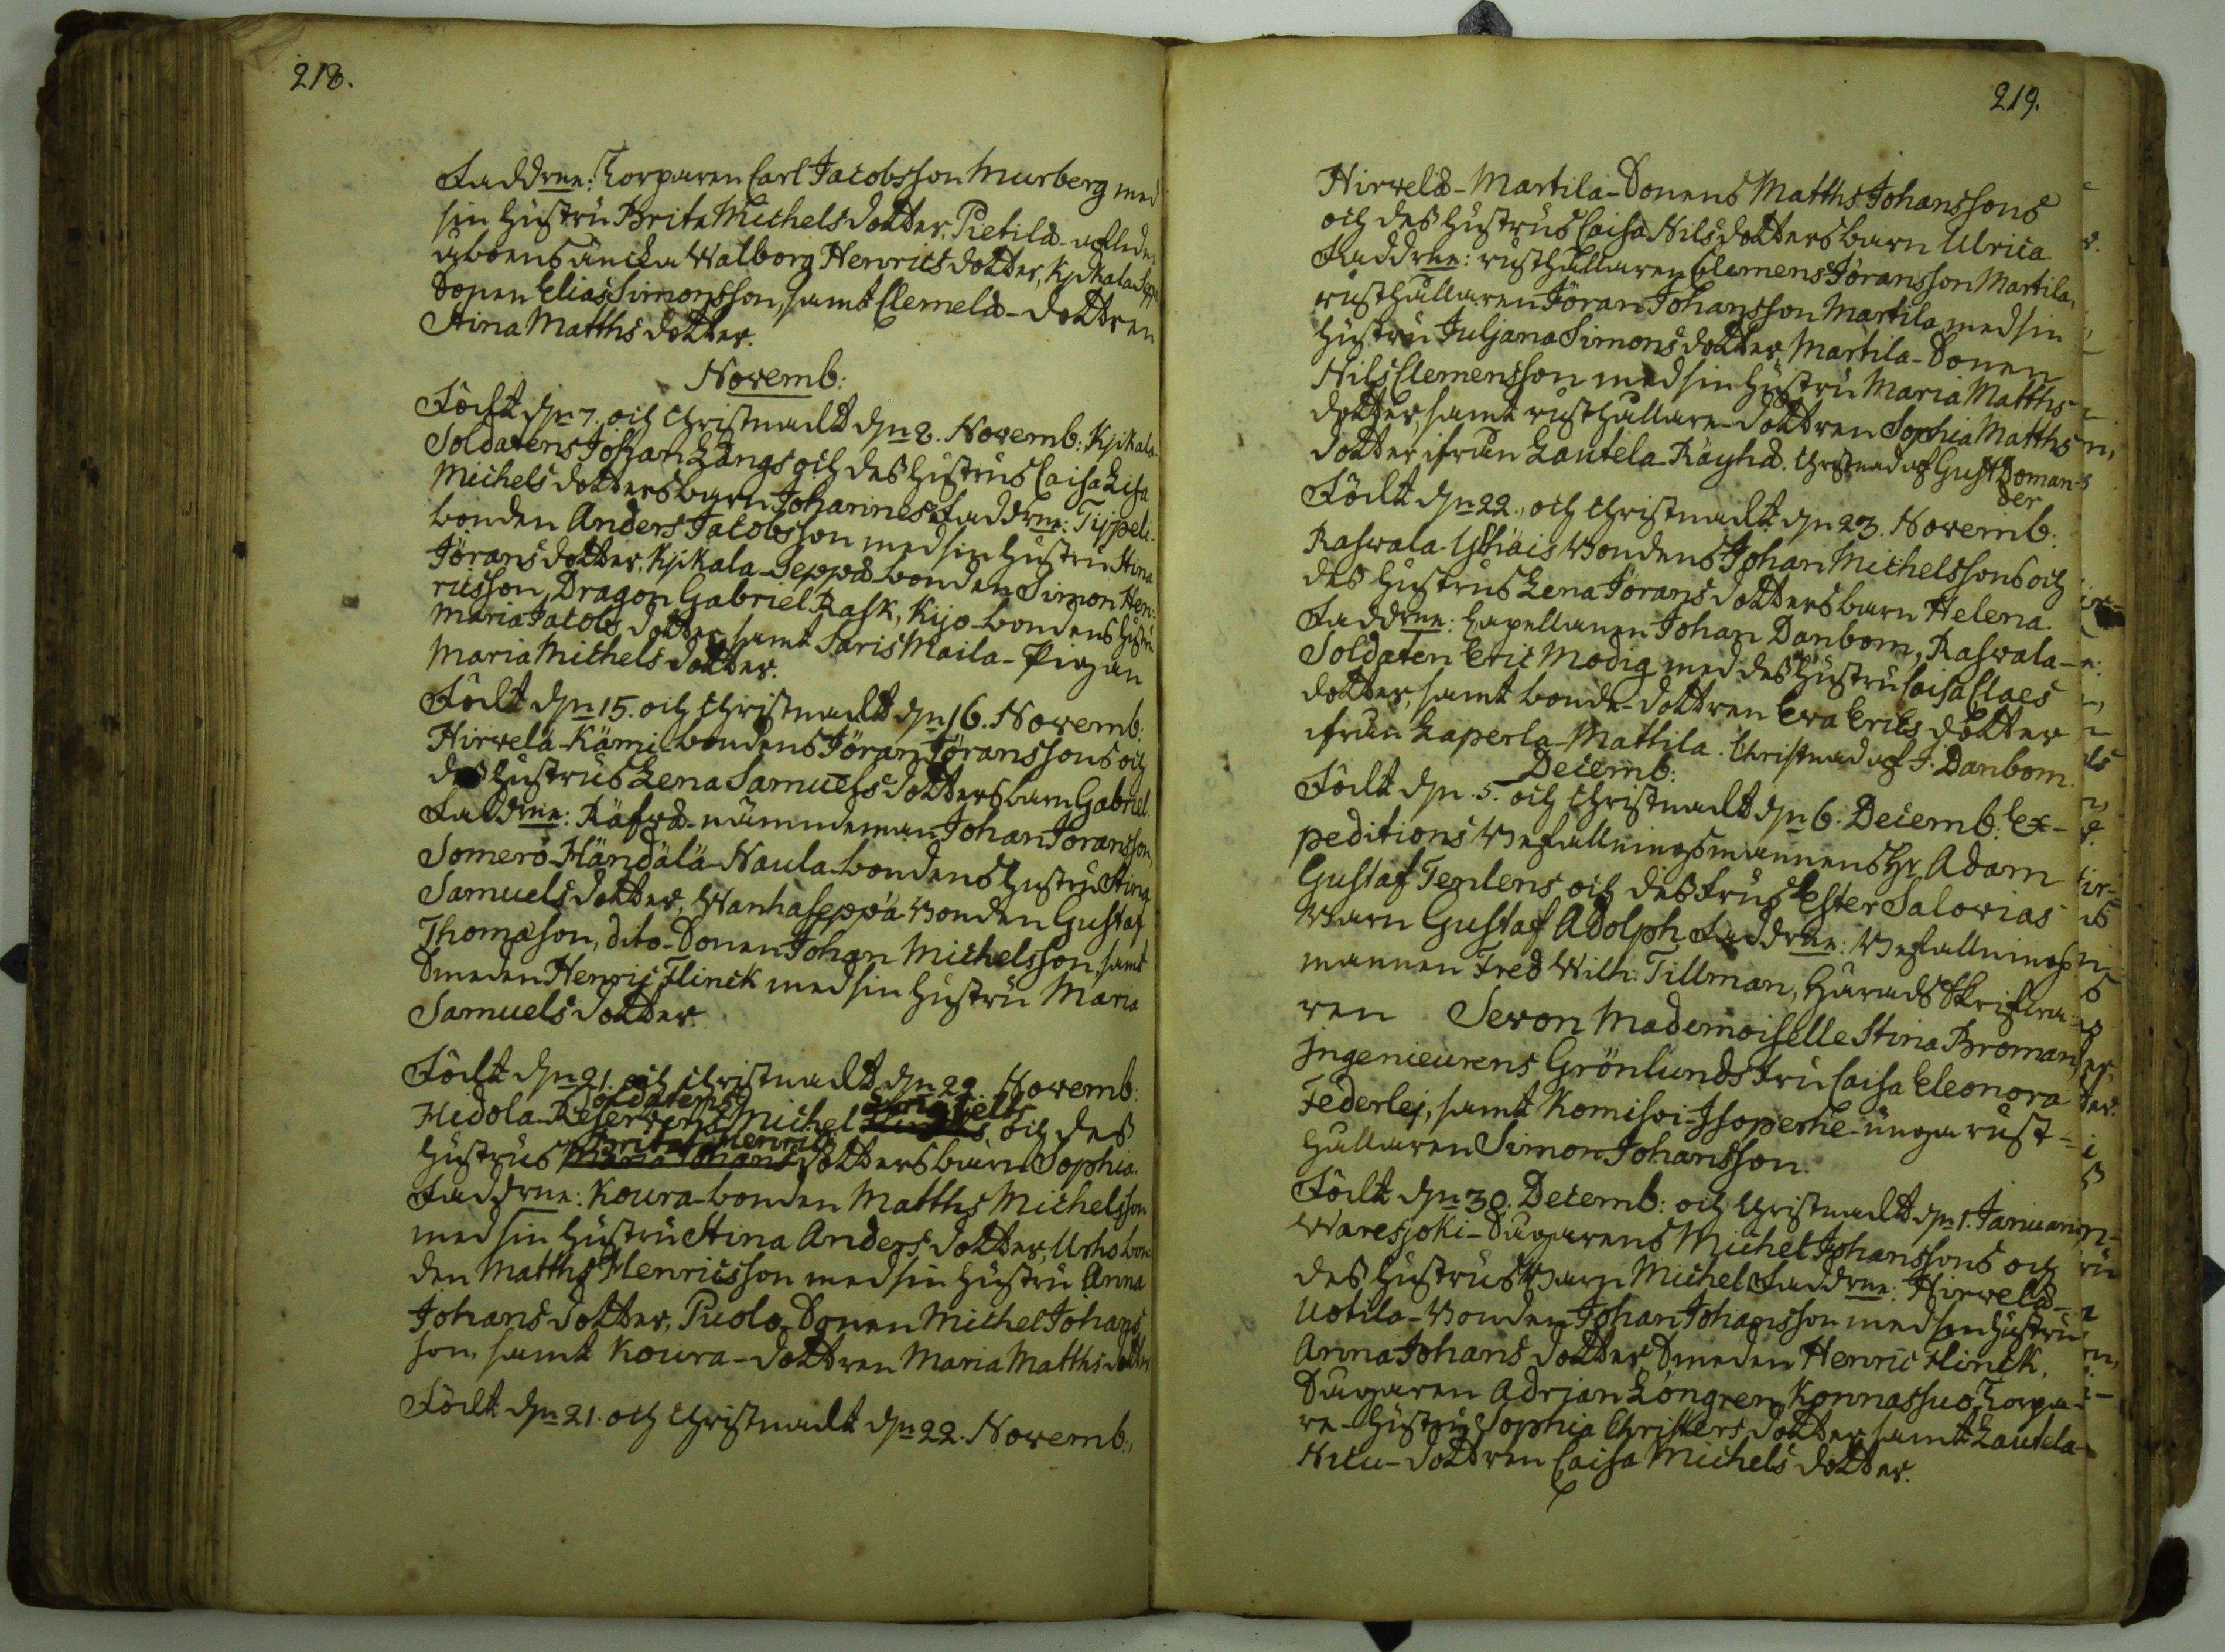 218.
Faddrne: Torparen Carl Jacobsson Murberg med
sin hustru Brita Michelsdotter, Pietilä-afledne
åboens änka Walborg Henricsdotter, Kjikala Seppä
Sonen Elias Simonsson, samt Clemelä-dottren
Stina Matthsdotter.
Novemb:
Födt d. 7. och Christnadt d. 8. Novemb: Kjikala-
Soldatens Johan Långs och des hustrus Caisa Lisa
Michelsdotters barn Johannes. Faddrne: Typpeli-
bonden Anders Jacobsson med sin hustru Stina
Jöransdotter, Kjikala-Seppä bonden Simon Hen-
ricsson, Dragon Gabriel Rask, Kijo-bondens hustru
Maria Jacobsdotter, samt Saris Maila-Pigan
Maria Michelsdotter.
Födt d. 15. och Christnadt d. 16. Novemb:
Hirvelä-Kämi-bondens Jöran Jöranssons och
des hustrus Lena Samuelsdotters barn Gabriel.
Faddrne: Räfvä-nämndeman Johan Joransson,
Somero-Händälä-Naula-bondens hustru Stina
Samuelsdotter, Wanhaseppä bonden Gustaf
Thomæson, dito-Sonen Johan Michelsson, samt
Smeden Henric Flinck med sin hustru Maria
Samuelsdotter.
Födt d. 21. och Christnadt d. 22. Novemb:
Soldatens
Hidola-Reservens Michel och des
Brita Henrics
hustrus Maria Johansdotters barn Sophia.
Faddrne: Koura-bonden Matths Michelsson
med sin hustru Stina Andersdotter, Urho bon
den Matths Henricsson med sin hustru Anna
Johansdotter, Puolo-Sonen Michel Johans
son, samt Koura-dottren Maria Matthsdotter
Födt d. 21. och Christnadt d. 22. Novemb:,
219.
Hirvelä-Martila-Sonens Matths Johanssons
och des hustrus Caisa Nilsdotters barn Ulrica.
Faddrne: rusthållaren Clemens Jöransson Martila,
rusthållaren Jöran Johansson Martila med sin
hustru Juljana Simonsdotter, Martila-Sonen
Nils Clemensson med sin hustru Maria Matths
dotter, samt rusthållare-dottren Sophia Matths
dotter ifrån Lautela-Räyhä. Christnad af Gust Doman-
der
Födt d. 22., och Christnadt d. 23. Novemb:
Raswala-Yliäis bondens Johan Michelssons och
des hustrus Lena Joransdotters barn Helena.
Faddrne: Capellanen Johan Danbom, Raswala-
Soldaten Eric Modig med des hustru Caisa Claes
dotter, samt bonde-dottren Eva Ericsdotter
ifrån Laperla-Mattila. Christnad af J. Danbom.
Decemb:
Födt d. 5. och Christnadt d. 6. Decemb: Ex-
peditions Befallningsmannens Hr Adam
Gustaf Tenlens och des frus Ester Salovias
barn Gustaf Adolph. Faddrne: Befallnings
mannen Fred Wilh: Tillman, Häradsskrifva-
ren Sevon Mademoiselle Stina Broman,
Ingenieurens Grönlunds fru Caisa Eleonora
Federlej, samt Komisoi-Isoperhe-unga rust-
hållaren Simon Johansson.
Födt d. 30. Decemb: och Christnadt d. 1. Januari
Waresjoki-Sugarens Michel Johanssons och
des hustrus barn Michel. Faddrne: Hirvelä-
Uotila-bonden Johan Johansson med sin hustru
Anna Johansdotter, Smeden Henric Flinck,
Sugaren Adrjan Löngren, Konnassuo Torpa-
re-hustru Sophia Christersdotter, samt Lautela-
Nicu-dottren Caisa Michelsdotter.